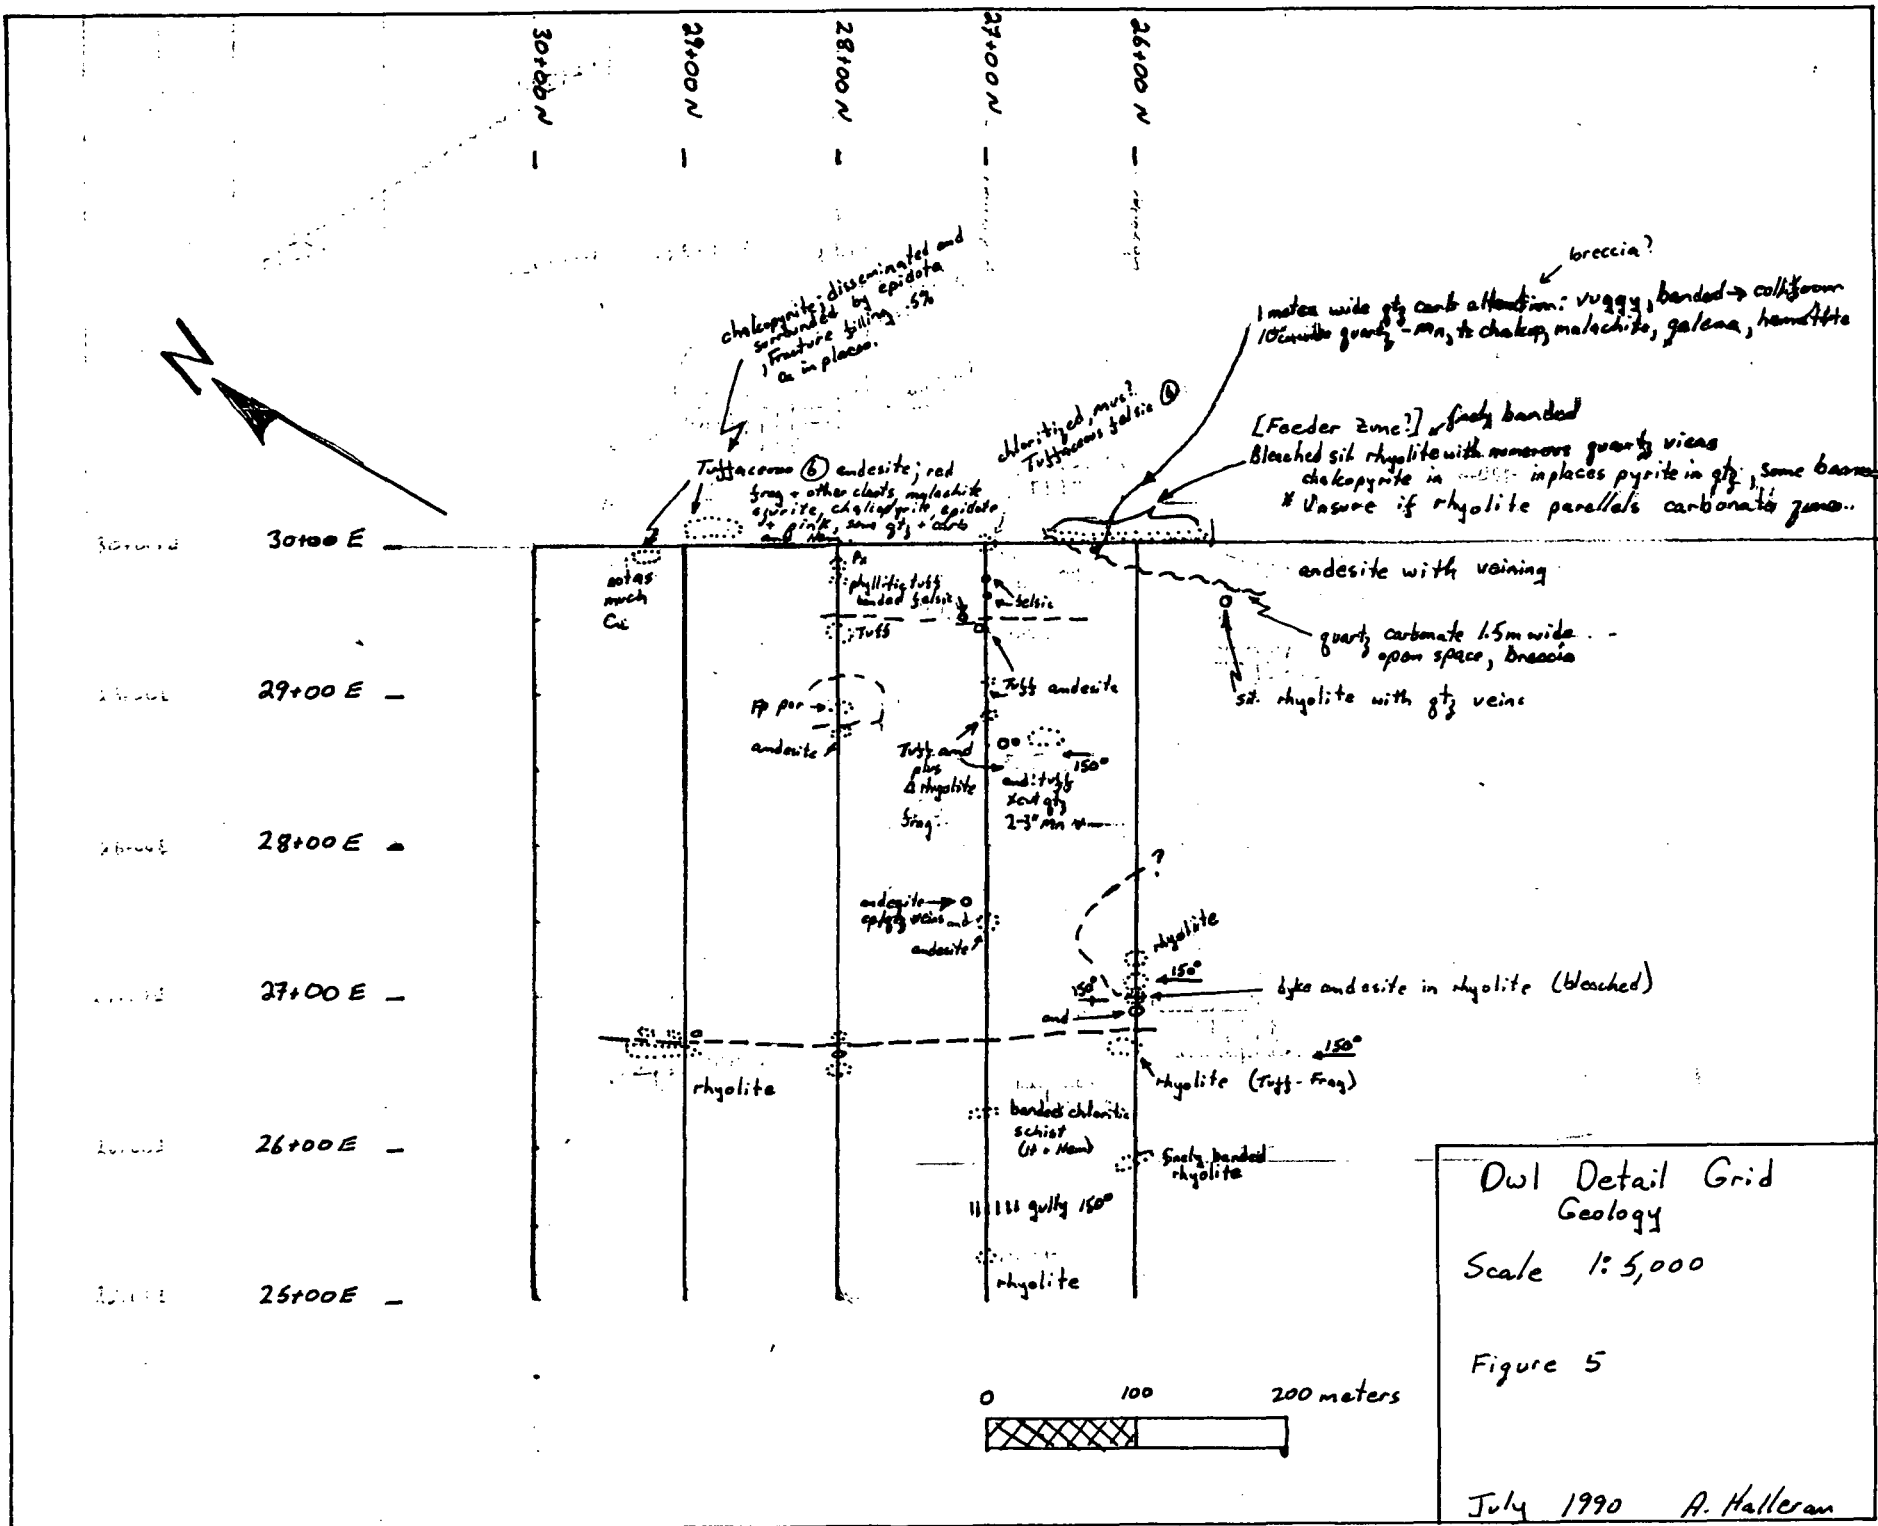 30+00 N
29+00 N
28+00 N
27+00 N
26+00 N
N
chalcopyrite; disseminated and
surrounded by epidota
, Fracture filling .5%
in places.
breccia?
1 meter wide qtz carb : vuggy, banded → 
quartz - Mn, chalcop, malachite, galena, hematite
chloritized, mus?
Tuffaceous felsic 6
[Feeder Zone?] finely banded
Bleached sil. rhyolite with numerous quartz viens
chalcopyrite in in places pyrite in qtz, some
* Unsure if rhyolite parallels carbonate
Tuffaceous 6 andesite; red
frag + other clasts, malachite
epidote
+ pink, some qtz + carb
and
30+00 E
not as
much
Cu
phyllitic tuff
banded felsic
felsic
Tuff
andesite with veining
quartz carbonate 1.5m wide
open space, breccia
sil. rhyolite with qtz veins
29+00 E
Tuff andesite
Fp por
andesite
Tuff and
plus
Δ rhyolite
frag
150°
and. tuff
xcut qtz
2-3" Mn
28+00 E
?
andesite
ep/qtz veins and
andesite
rhyolite
150°
150°
27+00 E
dyke andesite in rhyolite (bleached)
and
150°
rhyolite
rhyolite (Tuff-Frag)
banded chloritic
schist
26+00 E
finely banded
rhyolite
gully 150°
rhyolite
25+00 E
0 100 200 meters
Owl Detail Grid
Geology
Scale 1:5,000
Figure 5
July 1990 A. Halleran